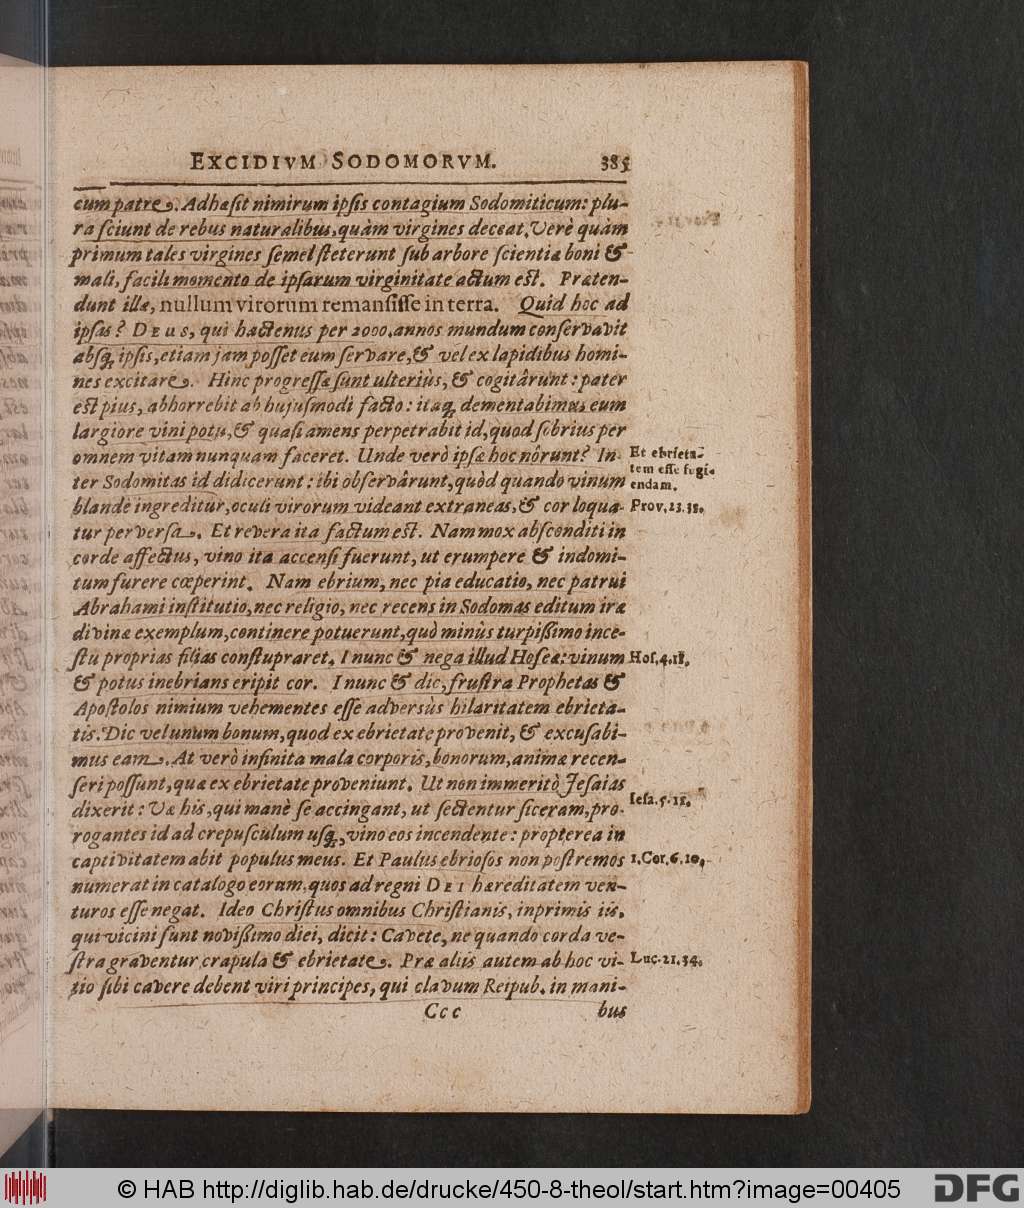 EXCIDIVM SODOMORVM. 385
cum patre. Adhæsit nimirum ipsis contagium Sodomiticum: plu-
ra sciunt de rebus naturalibus, quàm virgines deceat. Verè quàm
primum tales virgines semel steterunt sub arbore scientiæ boni &
mali, facili momento de ipsarum virginitate actum est. Præten-
dunt illæ, nullum virorum remansisse in terra. Quid hoc ad
ipsas? DEUS, qui hactenus per 2000. annos mundum conservavit
absq; ipsis, etiam jam posset eum servare, & vel ex lapidibus homi-
nes excitare. Hinc progressæ sunt ulteriùs, & cogitârunt: pater
est pius, abhorrebit ab hujusmodi facto: itaq; dementabimus eum
largiore vini potu, & quasi amens perpetrabit id, quod sobrius per
omnem vitam nunquam faceret. Unde verò ipsæ hoc nôrunt? In-
Et ebrieta-
tem esse fugi-
endam.
ter Sodomitas id didicerunt: ibi observârunt, quòd quando vinum
blandè ingreditur, oculi virorum videant extraneas, & cor loqua-
Prov. 23. 33.
tur perversa. Et revera ita factum est. Nam mox absconditi in
corde affectus, vino ita accensi fuerunt, ut erumpere & indomi-
tum furere cœperint. Nam ebrium, nec pia educatio, nec patrui
Abrahami institutio, nec religio, nec recens in Sodomas editum iræ
divinæ exemplum, continere potuerunt, quò minùs turpissimo ince-
stu proprias filias constupraret. I nunc & nega illud Hoseæ: vinum
Hos. 4. 11.
& potus inebrians eripit cor. I nunc & dic, frustra Prophetas &
Apostolos nimium vehementes esse adversùs hilaritatem ebrieta-
tis. Dic vel unum bonum, quod ex ebrietate provenit, & excusabi-
mus eam. At verò infinita mala corporis, bonorum, animæ recen-
seri possunt, quæ ex ebrietate proveniunt. Ut non immeritò Jesaias
dixerit: Væ his, qui manè se accingant, ut sectentur siceram, pro-
Iesa. 5. 11.
rogantes id ad crepusculum usq;, vino eos incendente: propterea in
captivitatem abit populus meus. Et Paulus ebriosos non postremos
1. Cor. 6. 10.
numerat in catalogo eorum, quos ad regni DEI hæreditatem ven-
turos esse negat. Ideo Christus omnibus Christianis, inprimis iis,
qui vicini sunt novissimo diei, dicit: Cavete, ne quando corda ve-
stra graventur crapula & ebrietate. Præ aliis autem ab hoc vi-
Luc. 21. 34.
tio sibi cavere debent viri principes, qui clavum Reipub. in mani-
Ccc bus
© HAB http://diglib.hab.de/drucke/450-8-theol/start.htm?image=00405
DFG